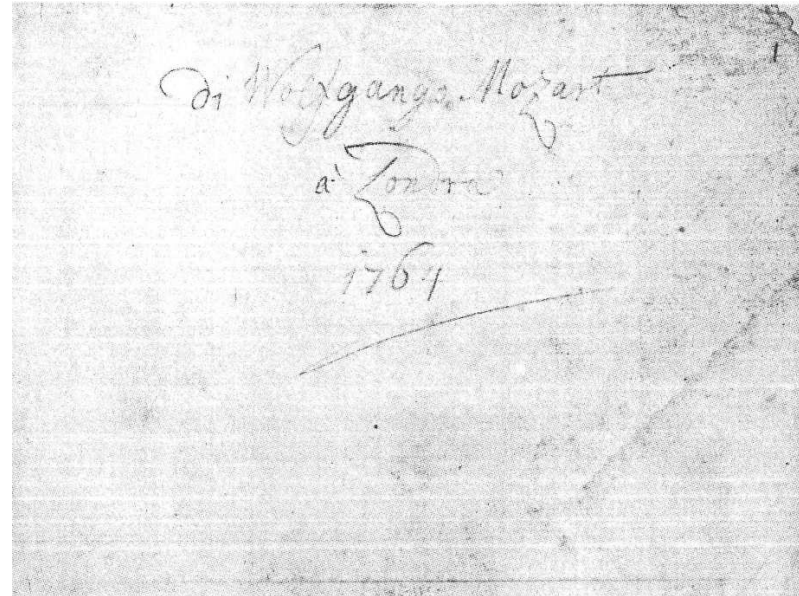 1
di Wolfgango Mozart
à Londra
1764